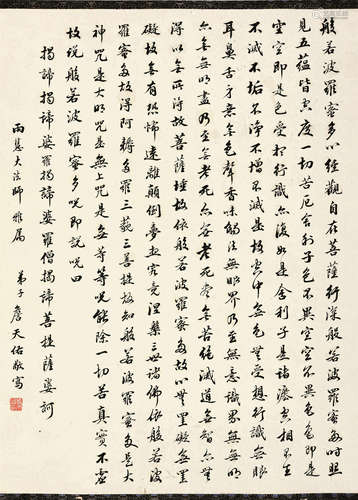 般若波羅蜜多心經觀自在菩薩行深般若波羅蜜多時照
見五蘊皆空度一切苦厄舍利子色不異空空不異色色即是
空空即是色受想行識亦復如是舍利子是諸法空相不生
不滅不垢不淨不增不減是故空中無色無受想行識無眼
耳鼻舌身意無色聲香味觸法無眼界乃至無意識界無無明
亦無無明盡乃至無老死亦無老死盡無苦集滅道無智亦無
得以無所得故菩提薩埵依般若波羅蜜多故心無罣礙無罣
礙故無有恐怖遠離顛倒夢想究竟涅槃三世諸佛依般若波
羅蜜多故得阿耨多羅三藐三菩提故知般若波羅蜜多是大
神咒是大明咒是無上咒是無等等咒能除一切苦真實不虛
故說般若波羅蜜多咒即說咒曰
揭諦揭諦婆羅揭諦婆羅僧揭諦菩提薩婆訶
雨曇大法師雅屬
弟子詹天佑敬寫